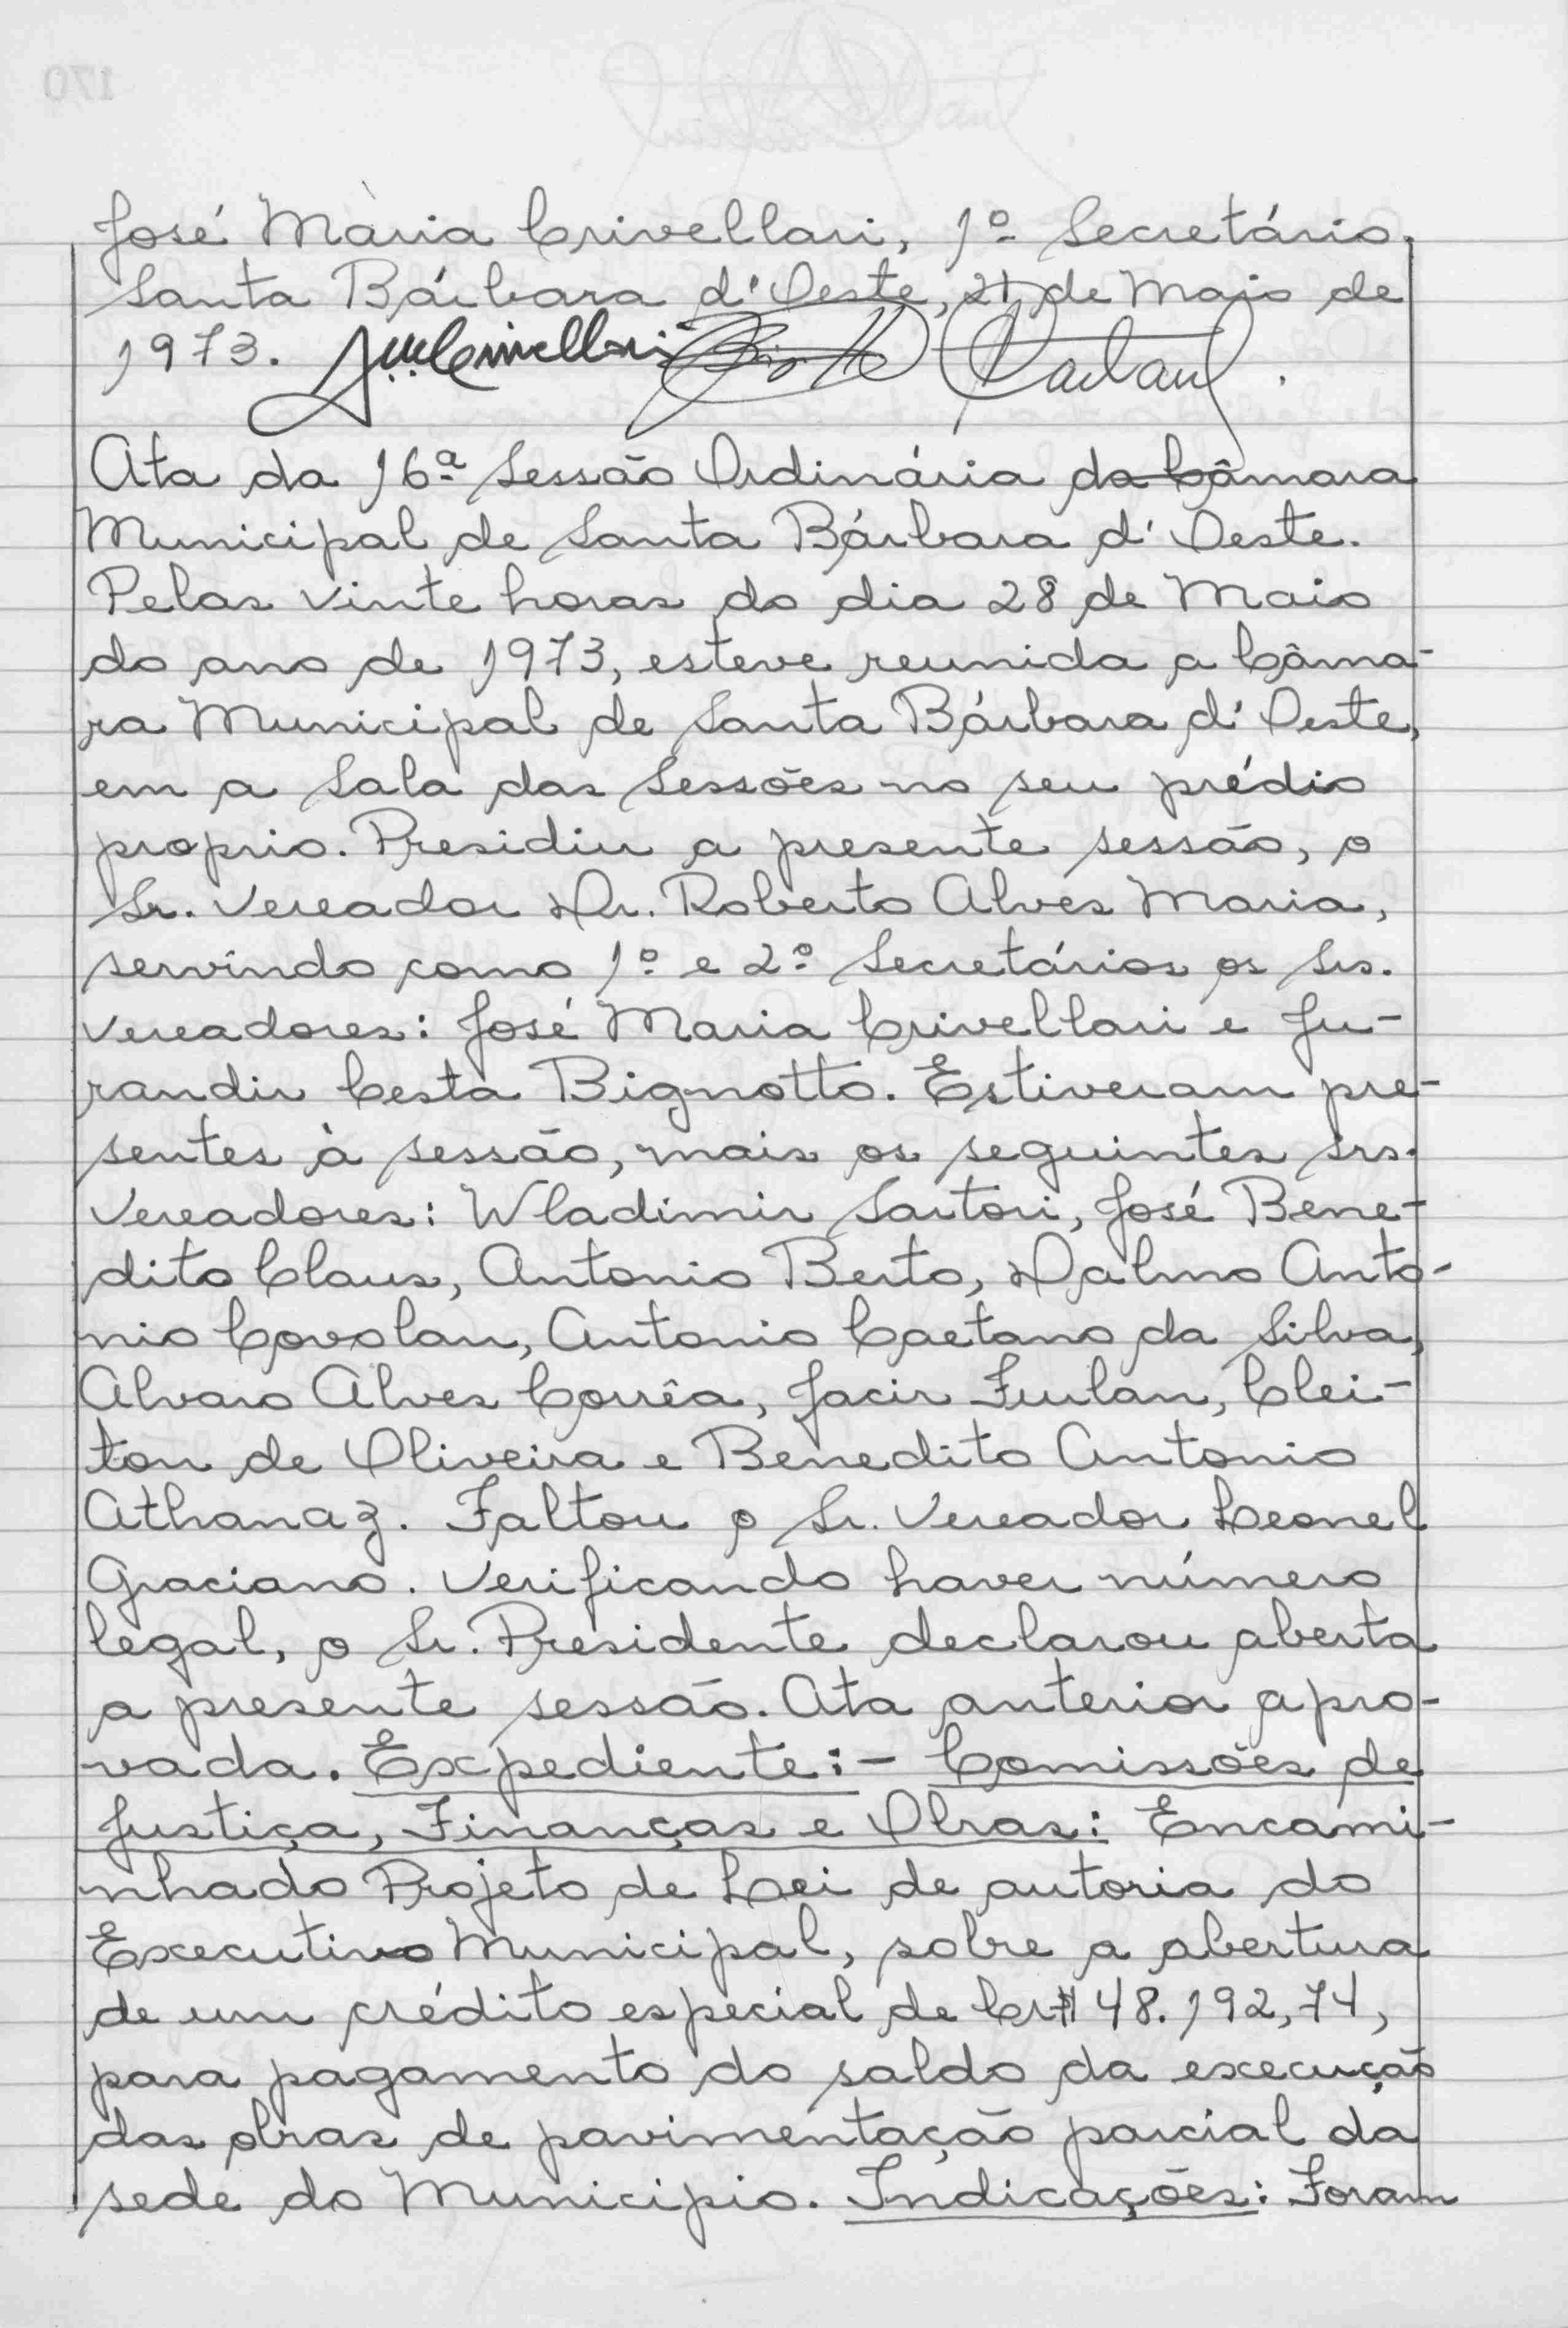 José Maria Crivellari, 1º Secretário.
Santa Bárbara d'Oeste, 21 de Maio de
1973.
Ata da 16ª Sessão Ordinária da Câmara
Municipal de Santa Bárbara d'Oeste.
Pelas vinte horas do dia 28 de Maio
do ano de 1973, esteve reunida a Câma-
ra Municipal de Santa Bárbara d'Oeste,
em a Sala das Sessões no seu prédio
proprio. Presidiu a presente sessão, o
Sr. Vereador Dr. Roberto Alves Maria,
servindo como 1º e 2º Secretários os Srs.
Vereadores: José Maria Crivellari e Ju-
randir Cesta Bignotto. Estiveram pre-
sentes à sessão, mais os seguintes srs.
Vereadores: Wladimir Sartori, José Bene-
dito Claus, Antonio Berto, Dalmo Anto-
nio Covolan, Antonio Caetano da Silva,
Alvaro Alves Corrêa, Jacir Furlan, Clei-
ton de Oliveira e Benedito Antonio
Athanaz. Faltou o Sr. Vereador Leonel
Graciano. Verificando haver número
legal, o Sr. Presidente declarou aberta
a presente sessão. Ata anterior apro-
vada. Expediente:- Comissões de
Justiça, Finanças e Obras: Encami-
nhado Projeto de Lei de autoria do
Executivo Municipal, sobre a abertura
de um crédito especial de Cr$ 48.192,74,
para pagamento do saldo da execução
das obras de pavimentação parcial da
sede do Municipio. Indicações: Foram